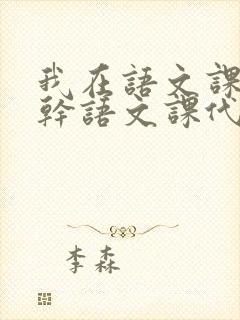 我在語文課
幹語文課代
李森